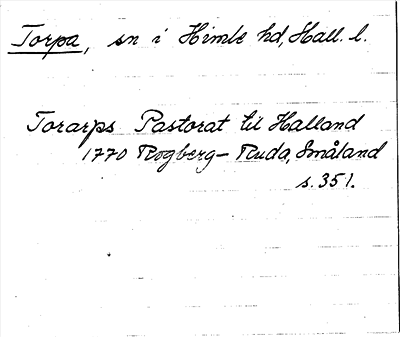 Torpa, sn i Himle hd, Hall. l.
Torarps Pastorat til Halland
1770 Rogberg - Ruda, Småland
s. 351.